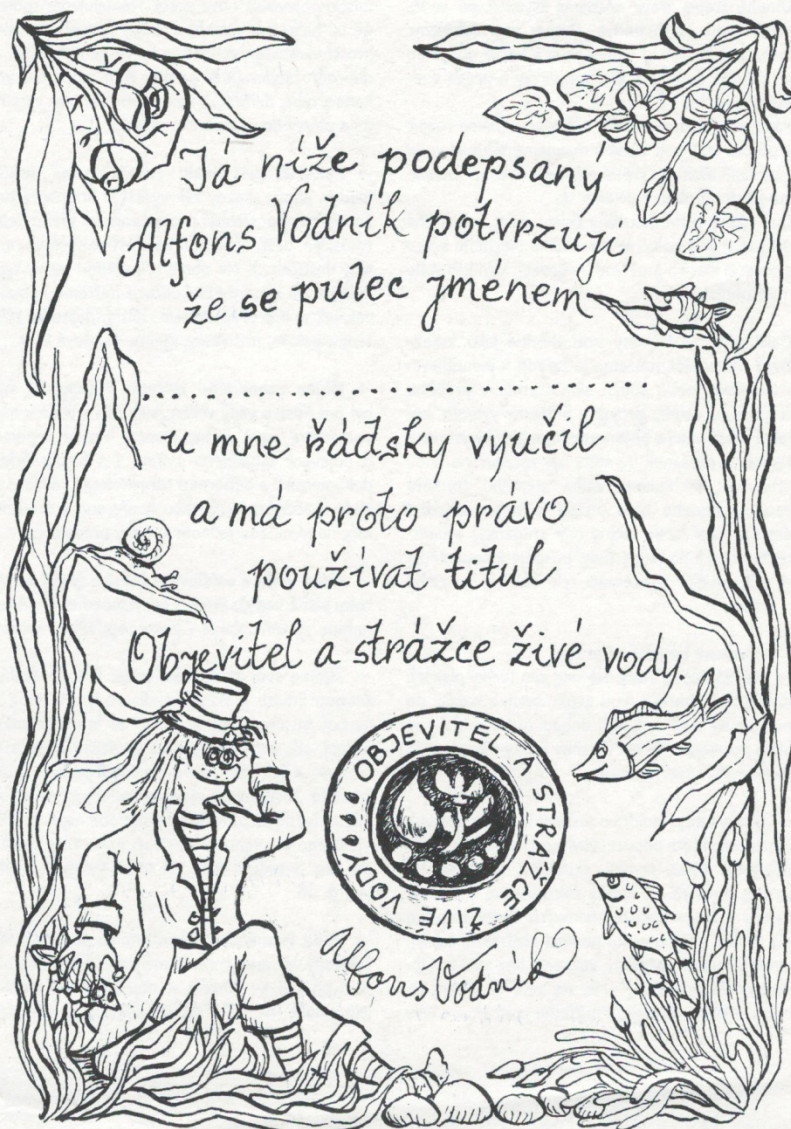 Já níže podepsaný
Alfons Vodník potvrzuji,
že se pulec jménem
..............................................
u mne řádsky vyučil
a má proto právo
používat titul
Objevitel a strážce živé vody.
OBJEVITEL A STRÁŽCE ŽIVÉ VODY
Alfons Vodník